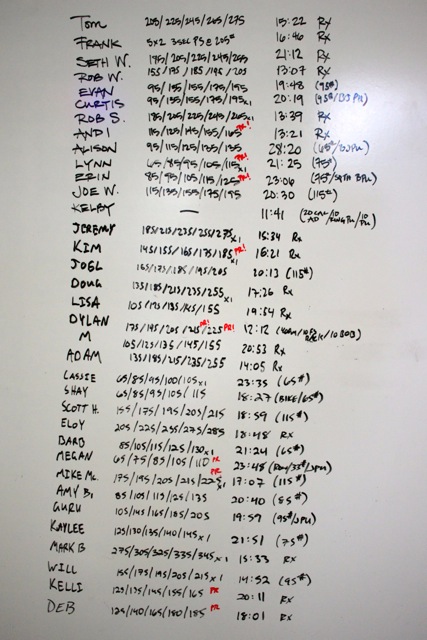 Tom 205/225/245/265/275 15:22 Rx
FRANK 5x2 3SEC PS @ 205# 16:46 Rx
SETH W. 175/205/225/245/255 21:12 Rx
ROB W. 155/175/185/195/205 13:07 Rx
EVAN 95/155/155/175/195 19:48 (95#)
CURTIS 95/155/155/175/195x1 20:19 (95#/BJ PU)
ROB S. 185/205/225/245/265x1 13:39 Rx
ANDI 115/125/145/155/165 PR! 13:21 Rx
ALISON 95/115/125/135/135 28:20 (65#/BJPU)
LYNN 65/85/95/105/115x1 PR! 21:25 (75#)
ERIN 85/95/105/115/125 PR! 23:06 (75#
JOE W. 115/135/155/175/195 20:30 (115#)
KELBY — 11:41
JEREMY 185/215/235/255/275x1 15:34 Rx
KIM 145/155/165/175/185x1 PR! 16:21 Rx
JOEL 165/175/185/195/205 20:13 (115#)
DOUG 135/185/215/235/255x1 17:26 Rx
LISA 105/125/135/145/155 19:54 Rx
DYLAN 175/195/205/215 PR!/225 PR! 12:12
M 105/125/135/145/155 20:53 Rx
ADAM 135/185/215/235/255 14:05 Rx
CASSIE 65/85/95/100/105x1 23:35 (65#)
SHAY 65/85/95/105/115 18:27 (BIKE/65#)
SCOTT H. 155/175/195/205/215 18:59 (115#)
ELOY 205/225/255/275/285 18:48 Rx
BARB 85/105/115/125/130x1 21:24 (65#)
MEGAN 65/75/85/105/110 PR 23:48 (ROW/35#/JPU)
MIKE Mc. 175/195/205/215/225x1 PR 17:07 (115#)
AMY B. 85/105/115/125/135 20:40 (85#)
GURU 105/145/165/185/205 19:57 (95#/JPU)
KAYLEE 125/130/135/140/145x1 21:51 (75#)
MARK B 275/305/325/335/345x1 15:33 Rx
WILL 155/175/195/205/215x1 14:52 (95#)
KELLI 125/135/145/155/165 PR 20:11 Rx
DEB 125/140/165/180/185 PR 18:01 Rx